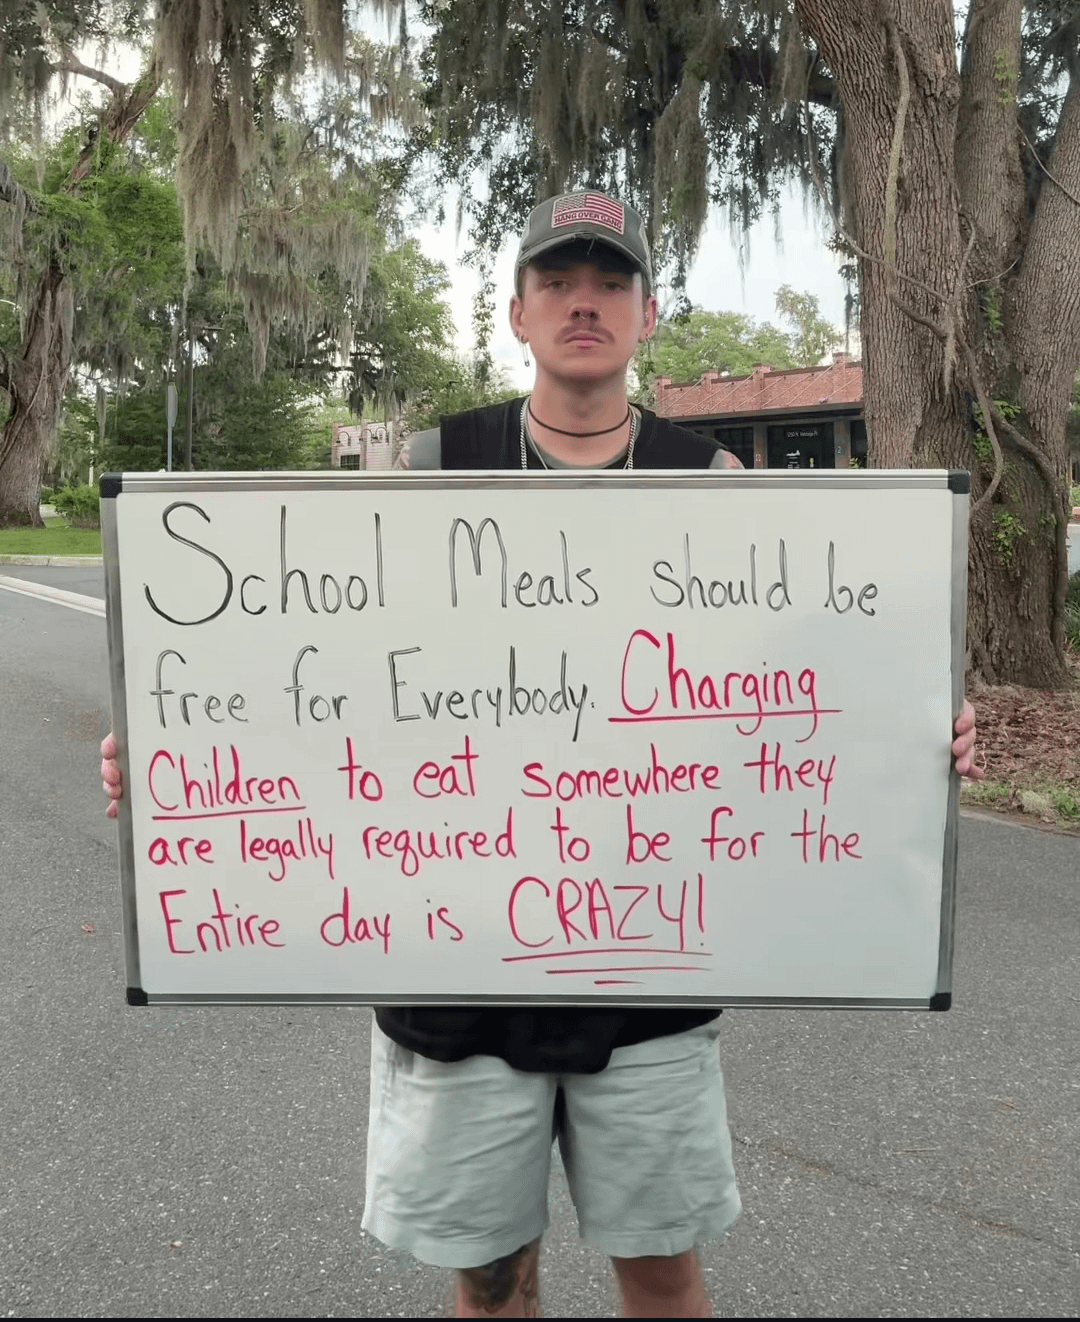 HANG OVER GANG
School Meals should be
free for Everybody. Charging
Children to eat somewhere they
are legally required to be for the
Entire day is CRAZY!